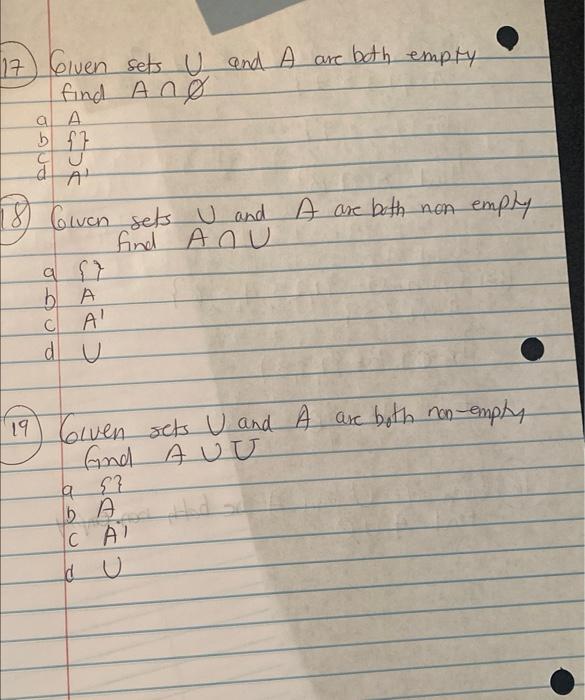 17 Given sets U and A are both empty
find A ∩ Ø
a A
b { }
c U
d A'
18 Given sets U and A are both non empty
find A ∩ U
a { }
b A
c A'
d U
19 Given sets U and A are both non-empty
find A ∪ U
a { }
b A
c A'
d U